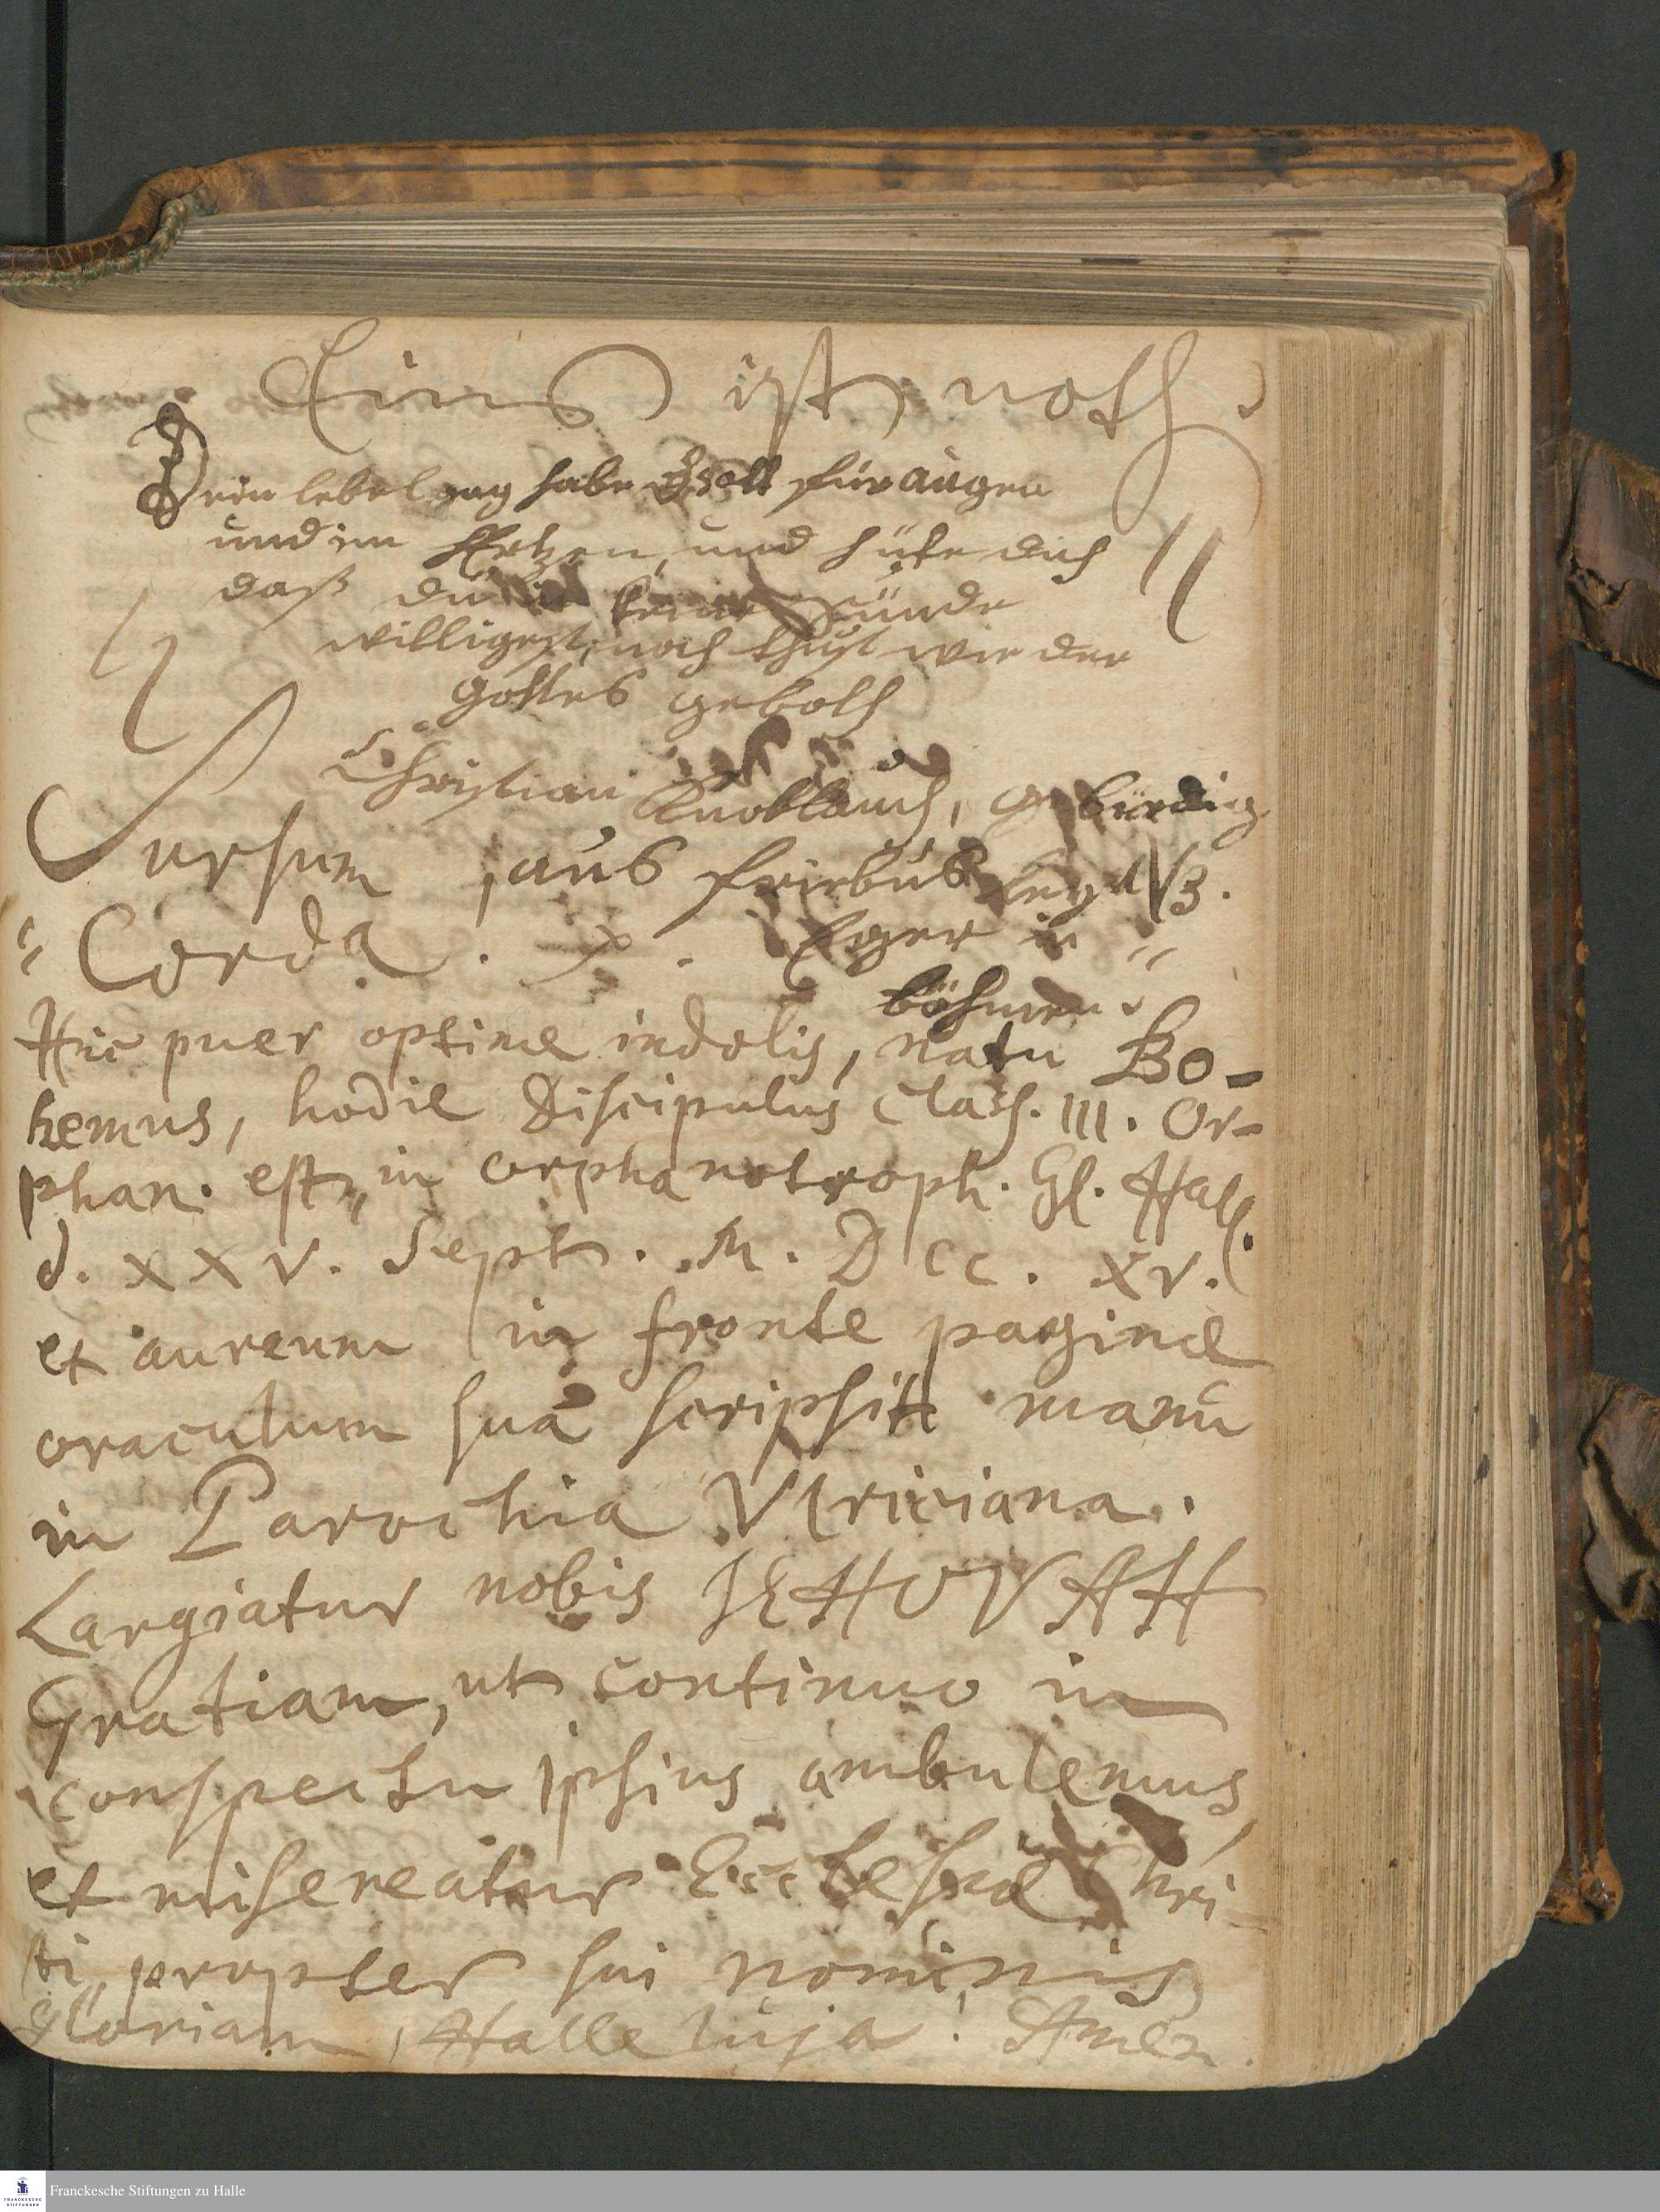 Eins ist noth.
Dein lebelgag habe Gott für augen
und im Hertzen, und hüte dich
daß du in keine Sünde
willigest, noch thust wieder
gottes geboth
Christian Knoblauch, gebürdig
Sursum , aus
Corda . x . Eger in
böhmen.
Hic puer optimæ indolis, natu Bo-
hemus, hodie Discipulus Class. III. Or-
phan. est, in orphanotroph. Gl. Hall.
d. XXV. Sept. M. D CC. XV.
et aureum in fronte paginæ
oraculum suâ scripsit manu
in Parochia Vlriciana.
Largiatur nobis JEHOVAH
Gratiam, ut continuo in
conspectu ipsius ambulemus
et misereatur Ecclesiæ Chri-
sti, propter sui nominis
Gloriam, Halleluja! Amen.
Franckesche Stiftungen zu Halle
FRANCKESCHE
STIFTUNGEN